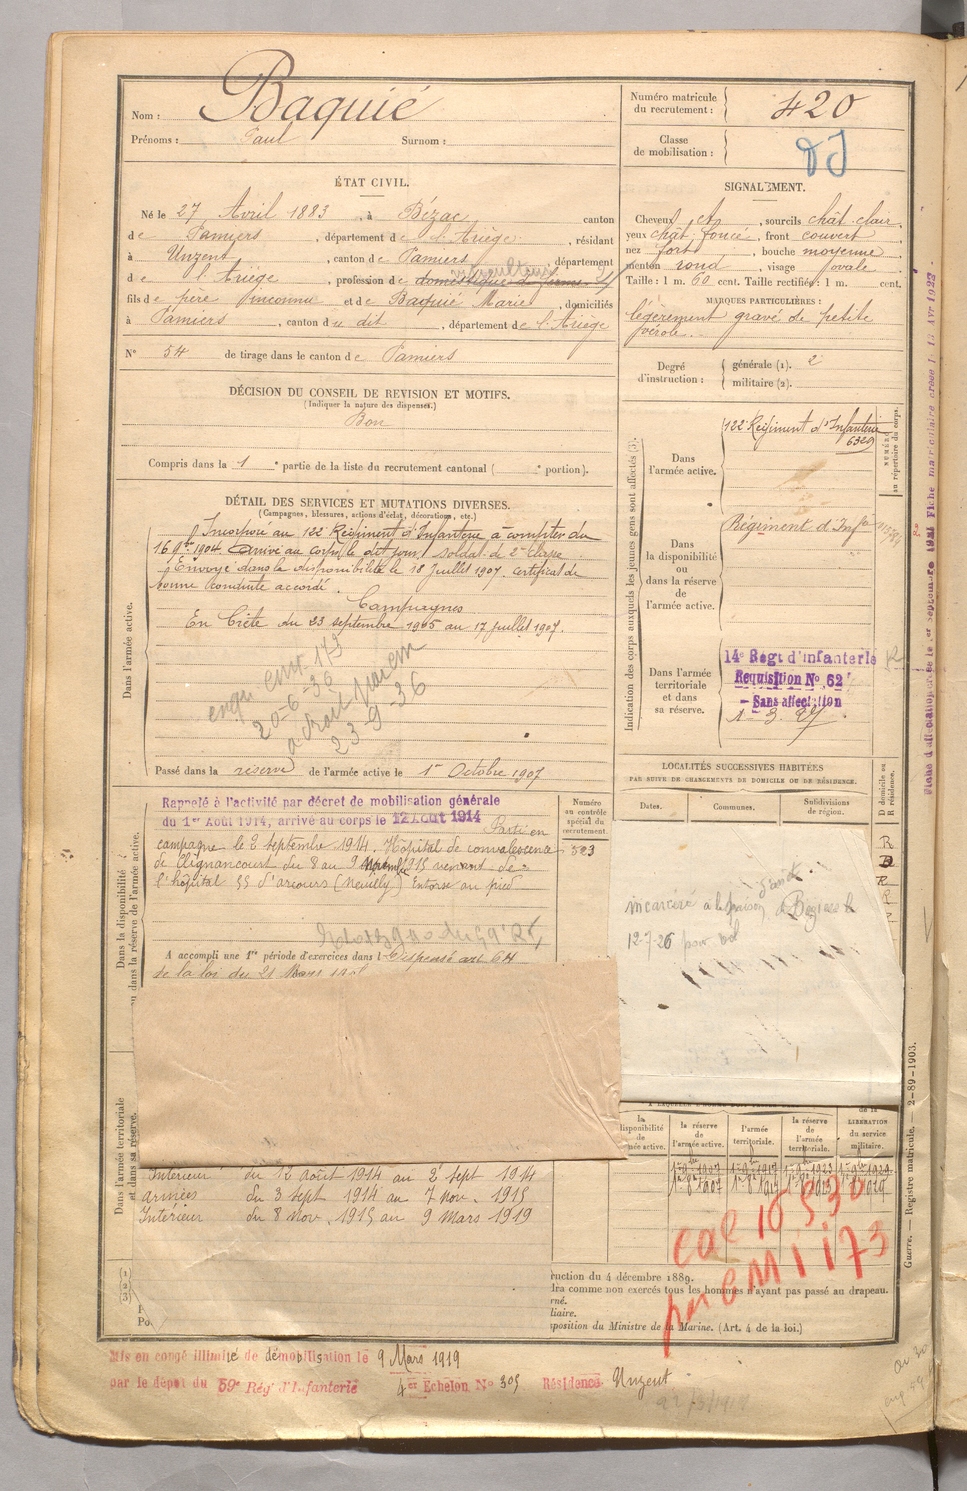 Nom : Baquié
Prénoms : Paul Surnom :
Numéro matricule du recrutement : 420
Classe de mobilisation :
ÉTAT CIVIL.
Né le 27 Avril 1883, à Bézac, canton
de Pamiers, département de l'Ariège, résidant
à Unzent, canton de Pamiers, département
de l'Ariège, profession de domestique de ferme
fils de père inconnu et de Baquié Marie, domiciliés
à Pamiers, canton du dit, département de l'Ariège
N° 54 de tirage dans le canton de Pamiers
SIGNALEMENT.
Cheveux ct, sourcils chât. clair,
yeux chât. foncé, front couvert
nez fort, bouche moyenne
menton rond, visage ovale
Taille : 1 m. 60 cent. Taille rectifiée : 1 m. cent.
MARQUES PARTICULIÈRES :
légèrement gravé de petite
vérole.
Degré d'instruction : générale (1). 2
militaire (2).
DÉCISION DU CONSEIL DE REVISION ET MOTIFS.
(Indiquer la nature des dispenses.)
Bon
Compris dans la 1e partie de la liste du recrutement cantonal ( e portion).
DÉTAIL DES SERVICES ET MUTATIONS DIVERSES.
(Campagnes, blessures, actions d'éclat, décorations, etc.)
Dans l'armée active.
Incorporé au 122e Régiment d'Infanterie à compter du
16 9bre 1904. Arrivé au corps le dit jour, soldat de 2e classe.
Envoyé dans la disponibilité le 18 Juillet 1907. Certificat de
bonne conduite accordé.
Campagnes
En Crète du 23 septembre 1905 au 17 juillet 1907.
20-6-36
23-9-36
Passé dans la réserve de l'armée active le 1er Octobre 1907
Indication des corps auxquels les jeunes gens sont affectés (3).
Dans l'armée active.
122e Régiment d'Infanterie
6329
NUMÉRO au répertoire du corps.
Dans la disponibilité ou dans la réserve de l'armée active.
Régiment d'Infie
Dans l'armée territoriale et dans sa réserve.
14e Régt d'Infanterie
Requisition No 62
- Sans affectation
1-3. 27
LOCALITÉS SUCCESSIVES HABITÉES
PAR SUITE DE CHANGEMENTS DE DOMICILE OU DE RÉSIDENCE.
Dates. Communes. Subdivisions de région.
D domicile ou R résidence.
R
D
R
R
R
Dans la disponibilité ou dans la réserve de l'armée active.
Rappelé à l'activité par décret de mobilisation générale
du 1er Août 1914, arrivé au corps le 12 Août 1914 Parti en
campagne le 2 septembre 1914. Hôpital de convalescence
de Clignancourt du 8 au 9 Novembre 1915 venant de
l'hôpital 55 d'arcours (Neuilly) Entorse au pied
Numéro au contrôle spécial du recrutement.
323
A accompli une 1re période d'exercices dans l Dispensé art 64
de la loi du 21 Mars
incarcéré à la prison de
12-7-26 pour vol
Dans l'armée territoriale et dans sa réserve.
Intérieur du 12 août 1914 au 2 sept 1914
armées du 3 sept 1914 au 7 nov. 1915
Intérieur du 8 nov. 1915 au 9 Mars 1919
la disponibilité de l'armée active.
la réserve de l'armée active.
l'armée territoriale.
la réserve de l'armée territoriale.
de la LIBÉRATION du service militaire.
ruction du 4 décembre 1889.
dra comme non exercés tous les hommes n'ayant pas passé au drapeau.
rné.
liaire.
sposition du Ministre de la Marine. (Art. 4 de la loi.)
Guerre. — Registre matricule. — 2-89-1903.
Mis en congé illimité de démobilisation le 9 Mars 1919
par le dépôt du 59e Rég d'Infanterie 4er Echelon No 305 Résidence Unzent